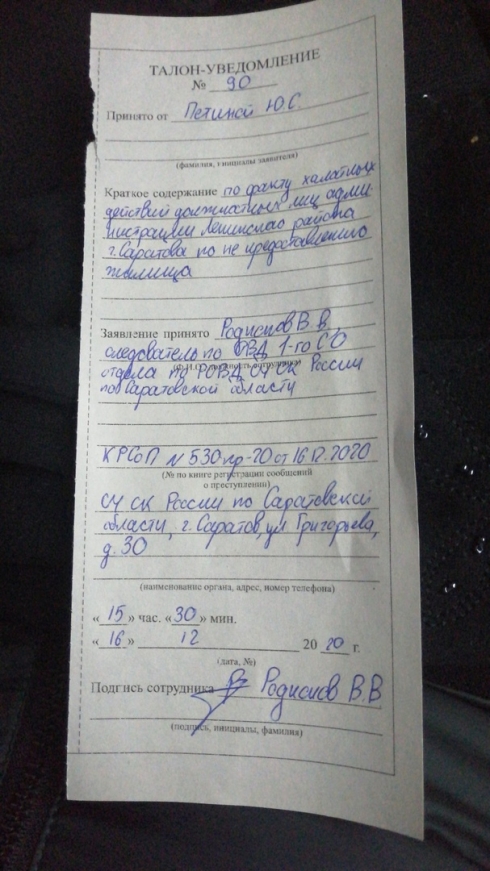 ТАЛОН-УВЕДОМЛЕНИЕ
№ 90
Принято от Петиной Ю С
(фамилия, инициалы заявителя)
Краткое содержание по факту халатных
действий должностных лиц адми
нистрации Ленинского района
г. Саратова по не предоставлению
жилища
Заявление принято Родионов В. В
следователь по ОВД 1-го СО
(Ф.И.О., должность сотрудника)
отдела по РОВД СУ СК России
по Саратовской области
КРСоП N 530пр-20 от 16.12.2020
(№ по книге регистрации сообщений
о преступлении)
СУ СК России по Саратовской
области, г. Саратов, ул Григорьева,
д. 30
(наименование органа, адрес, номер телефона)
« 15 » час. « 30 » мин.
« 16 » 12 20 20 г.
(дата, №)
Подпись сотрудника Родионов В. В
(подпись, инициалы, фамилия)